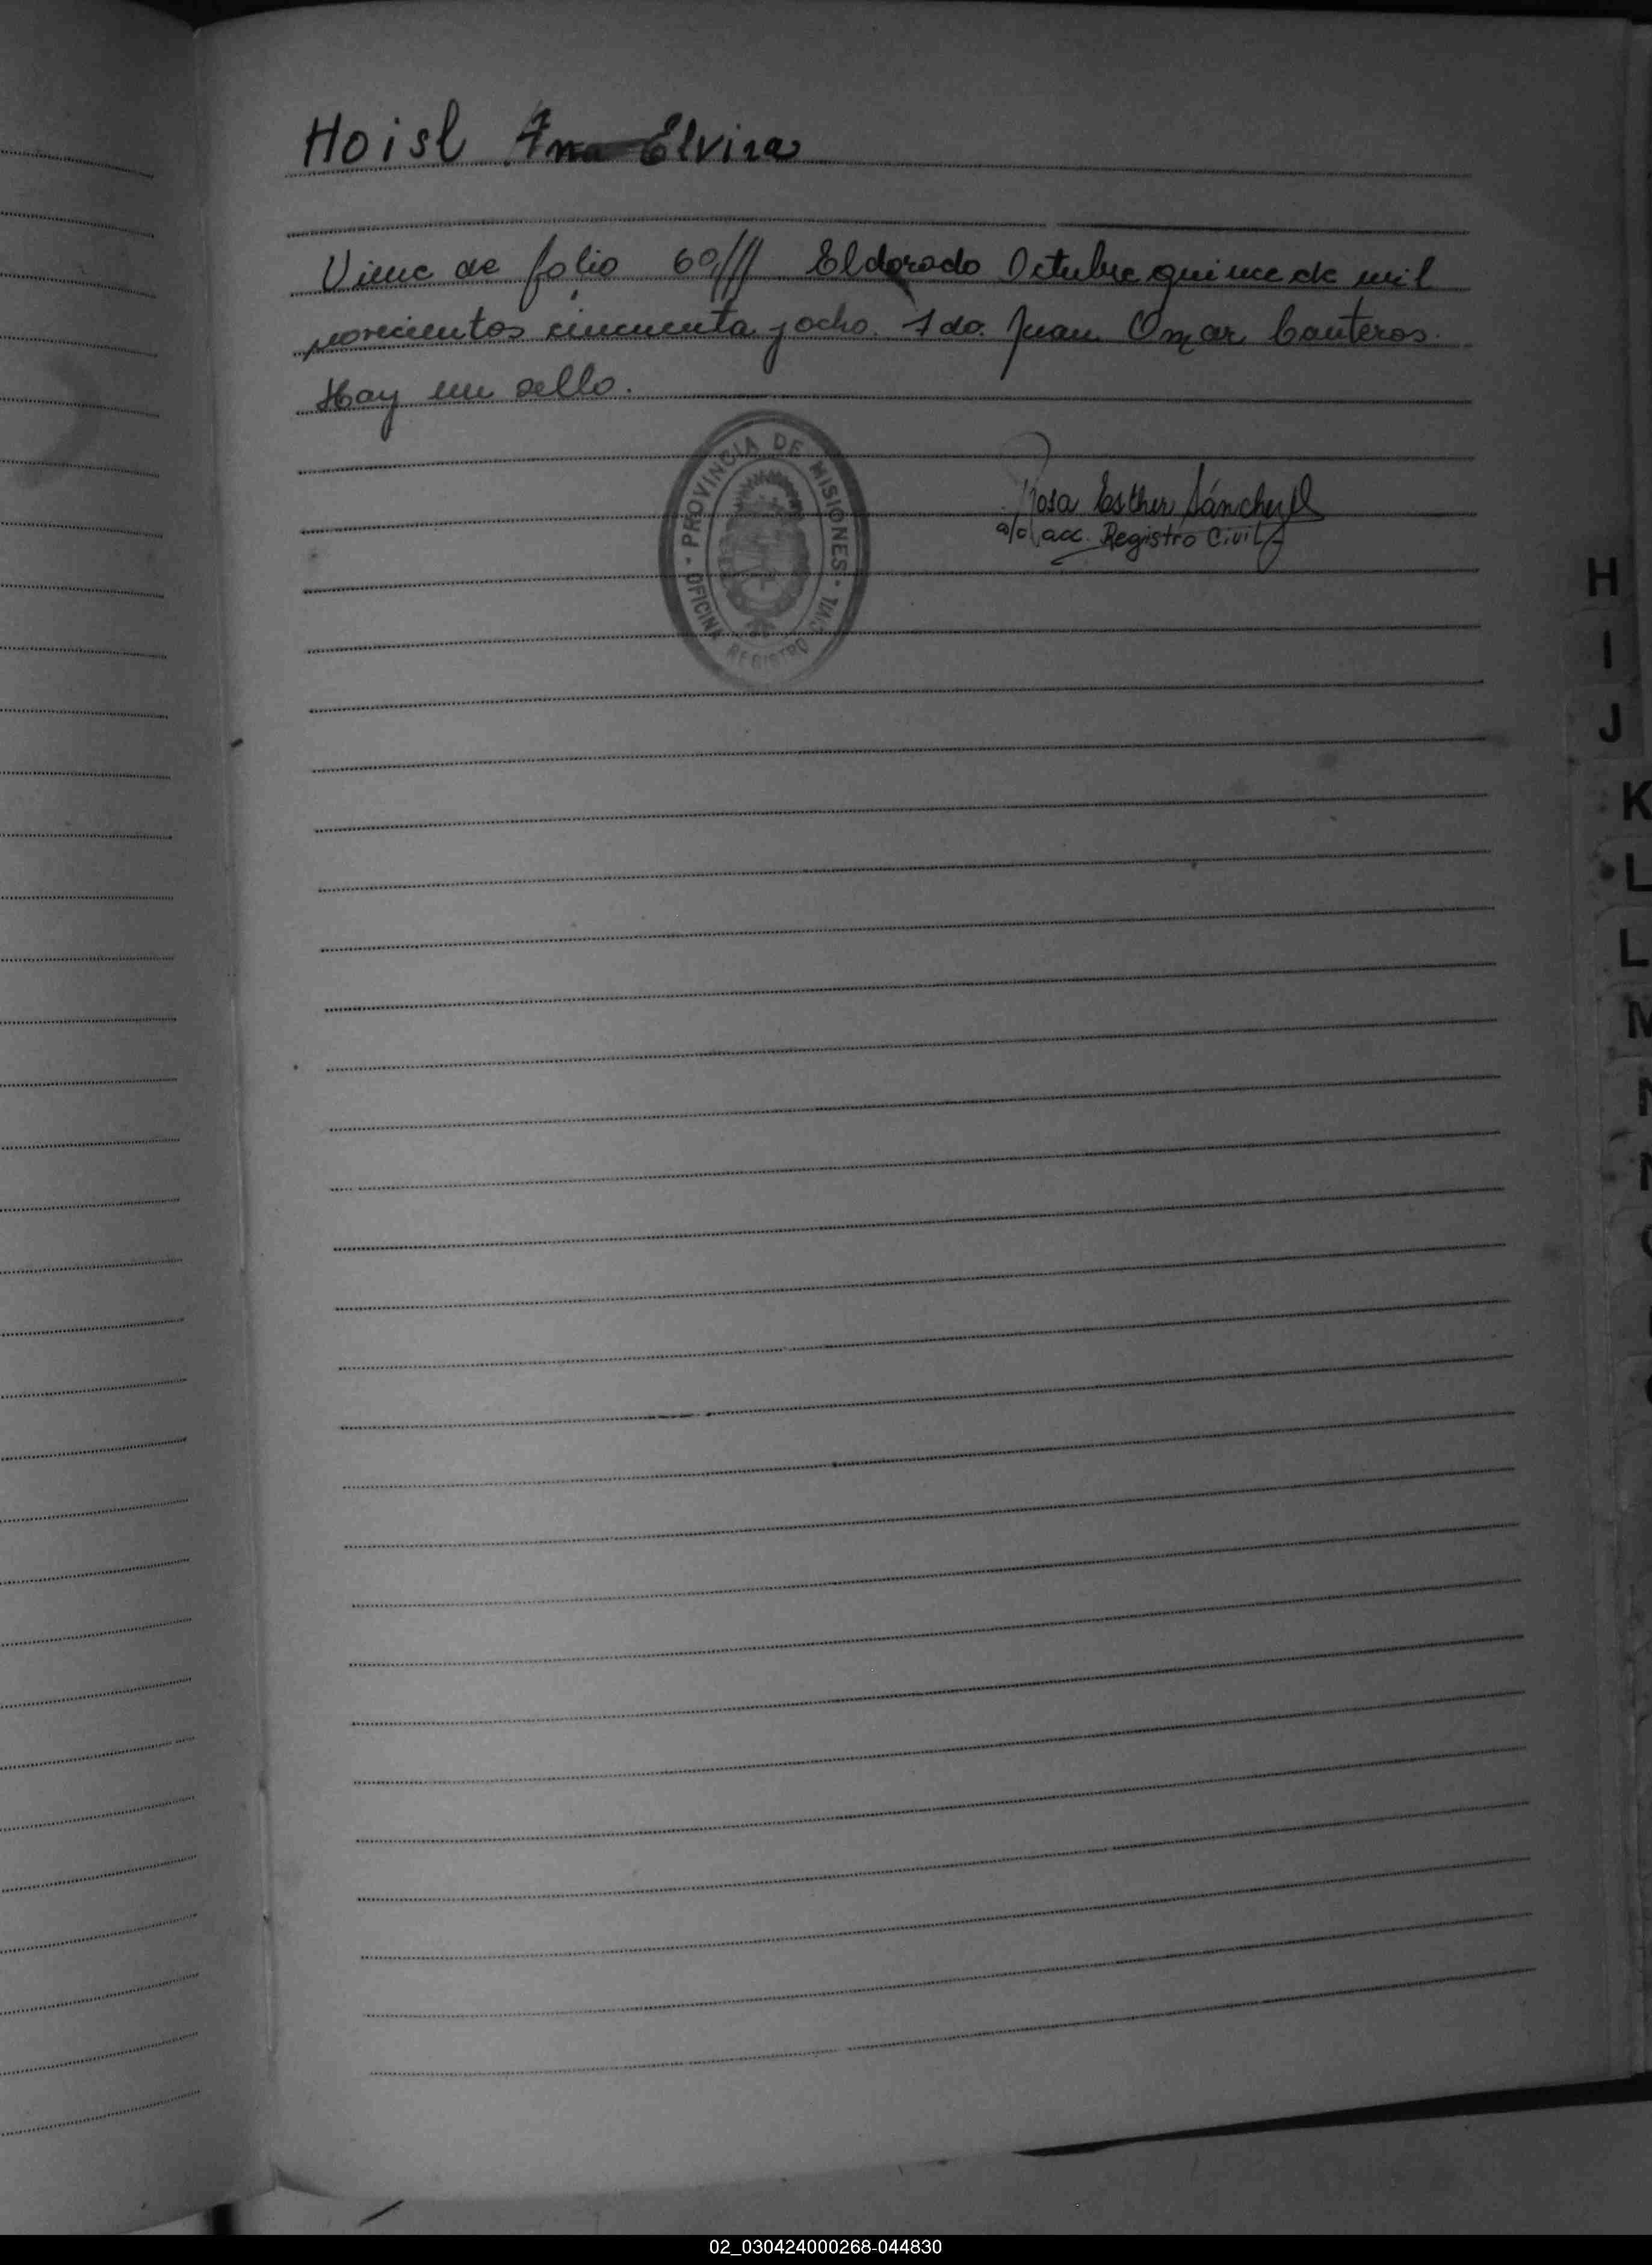 Hoisl Ana Elvira
Viene de folio 60/// Eldorado Octubre quince de mil
novecientos cincuenta y ocho. Fdo. Juan Omar Canteros.
Hay un sello.
PROVINCIA DE MISIONES
OFICINA REGISTRO CIVIL
Rosa Esther Sánchez
a/c acc. Registro Civil
H
I
J
K
L
L
M
N
N
02_030424000268-044830